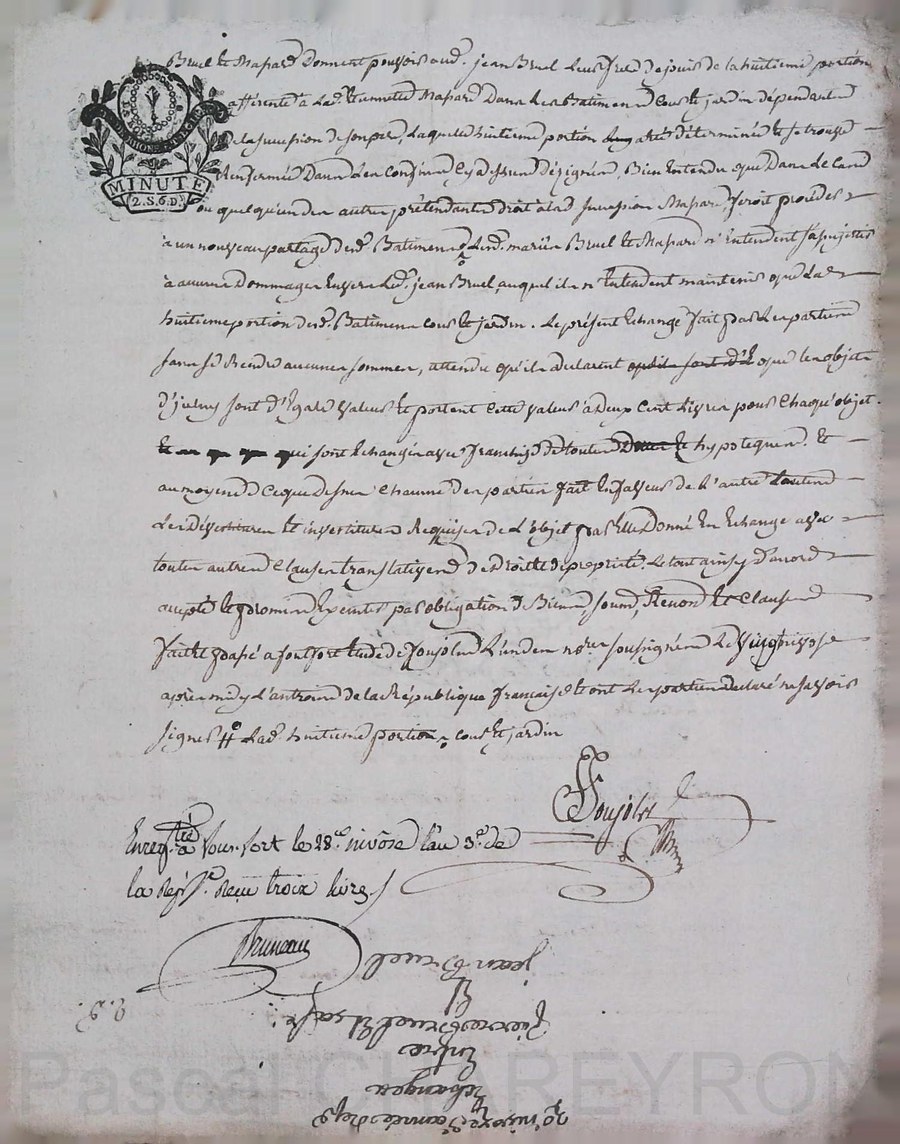 Bruel et Chapard donnent pouvoir aud. jean Bruel leur frere de jouir de la huitieme portion
afférente à lad. Chapard dans les Batimens cour et jardin dépendants
de la succession de son pere, laquelle huitieme portion a été determinée et se trouve
Renfermée dans les confins cy dessus désignés, Bien entendu que dans le cas
ou quelqu'un des autres prétendants droit à la succession Chapard, feroit proceder
à un nouveau partage desd. Batimens, lesd. mariés Bruel et Chapard n'entendent s'assujettir
à aucuns dommages envers led. jean Bruel, auquel ils n'entendent maintenir que la
huitieme portion desd. Batimens cour et jardin. Le présent Echange fait par les parties
sans se Rendre aucunes sommes, attendu qu'ils declarent que les objets
d'iceluy sont d'Egale valeur et portent cette valeur à deux cent livres pour chaque objet.
qui sont echangés avec franchise de toutes hypoteques. Et
au moyen de ce que dessus chacune des parties fait en faveur de l'autre
les dévestitures et investitures Requises de l'objet par Elle donné En Echange avec
toutes autres clauses translatives de droit de proprieté. Le tout ainsy d'accord
accepté et promis Executer par obligation de Biens, soumd, Renond et Clauses
fait et passé a fontfort etude de Foujols l'un des nores soussignés Le vingt nivose
apres midy l'an trois de la République française et ont les parties declaré ne savoir
signer # lad. huitieme portion cour et jardin
Foujols
Enregtré à Four-fort le 28e. nivôse l'an 3e. de
la Rép. Reçu troix livres
Bruneau
MINUTE
2. S. 6. D.
20 nivose 3e année Rep
Echanges
Entre
Pierre Bruel
Et
jean Bruel
Pascal CHAREYRON